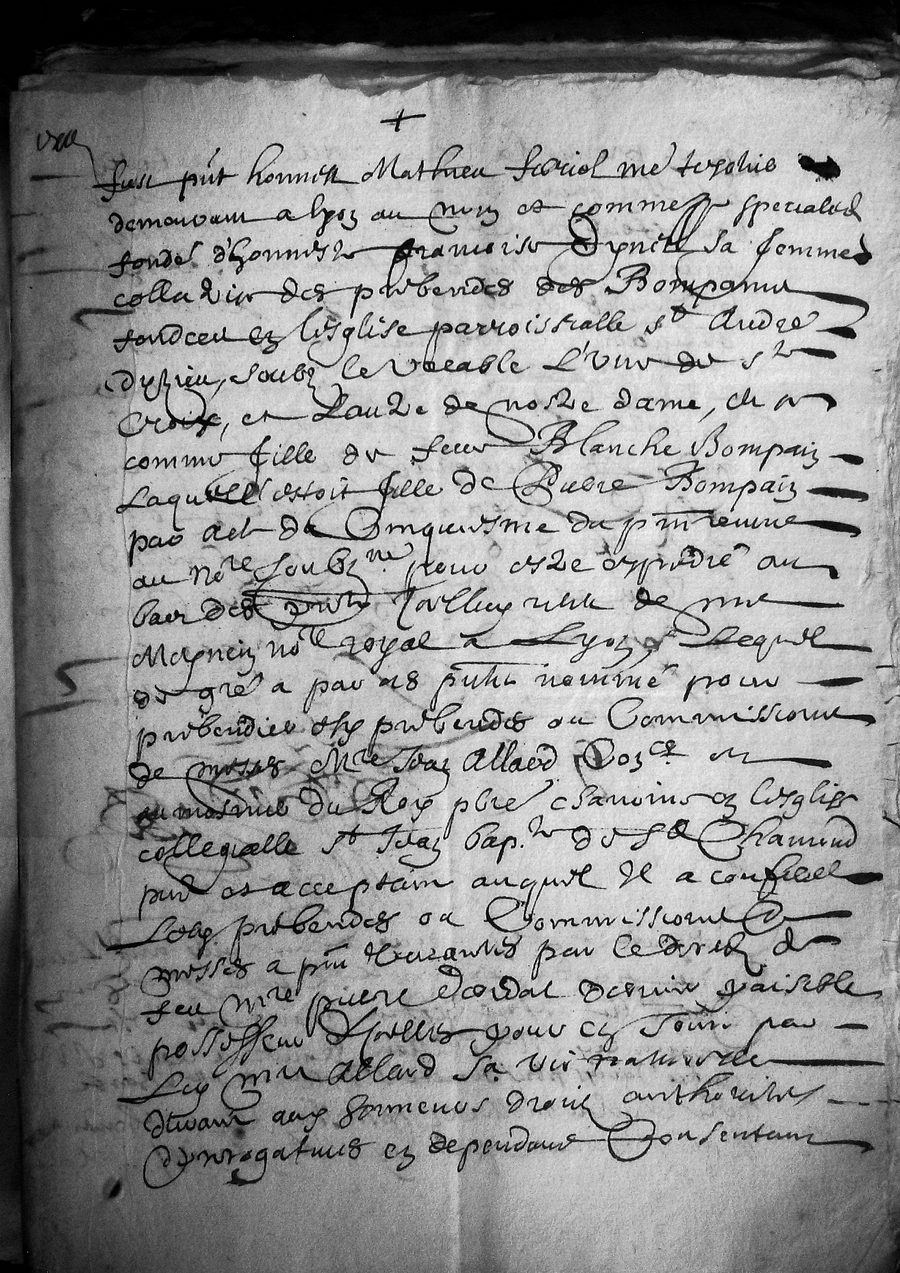 +
fust pñt honneste Mathieu feriol me
demeurant a lyon au nom et comme special
fondé d'honneste francoise sa femme
collatrix des prebendes des Bompains
fondees en lesglise parroissialle st André
dyzieu, soubz le vocable L'une de ste
Croix, et L'autre de nostre dame, et
comme fille de feue Blanche Bompain
Laquelle estoit fille de Pierre Bompain
par acte du Cinquiesme du pñt remise
au nore soubzne pour estre expedié au
bas des pntes de me
Maynein nore royal a Lyon, Lequel
de gré a par ces pntes nommé pour
prebendier esd prebendes ou Commissions
de messes Mre Jean Allard Coner et
aumosnier du Roy pbre chanoine en lesglise
collegialle st Jean bapte de St Chamond
pnt et acceptant auquel Il a conferé
Lesd prebendes ou Commissions de
messes a pnt vacantes par le deces de
feu mre pierre dernier paisible
possesseur dicelles pour en Jouir par
Led mre Allard sa vie naturelle
durant aux honneurs droitz authorites
prerogatives en dependans Consentant